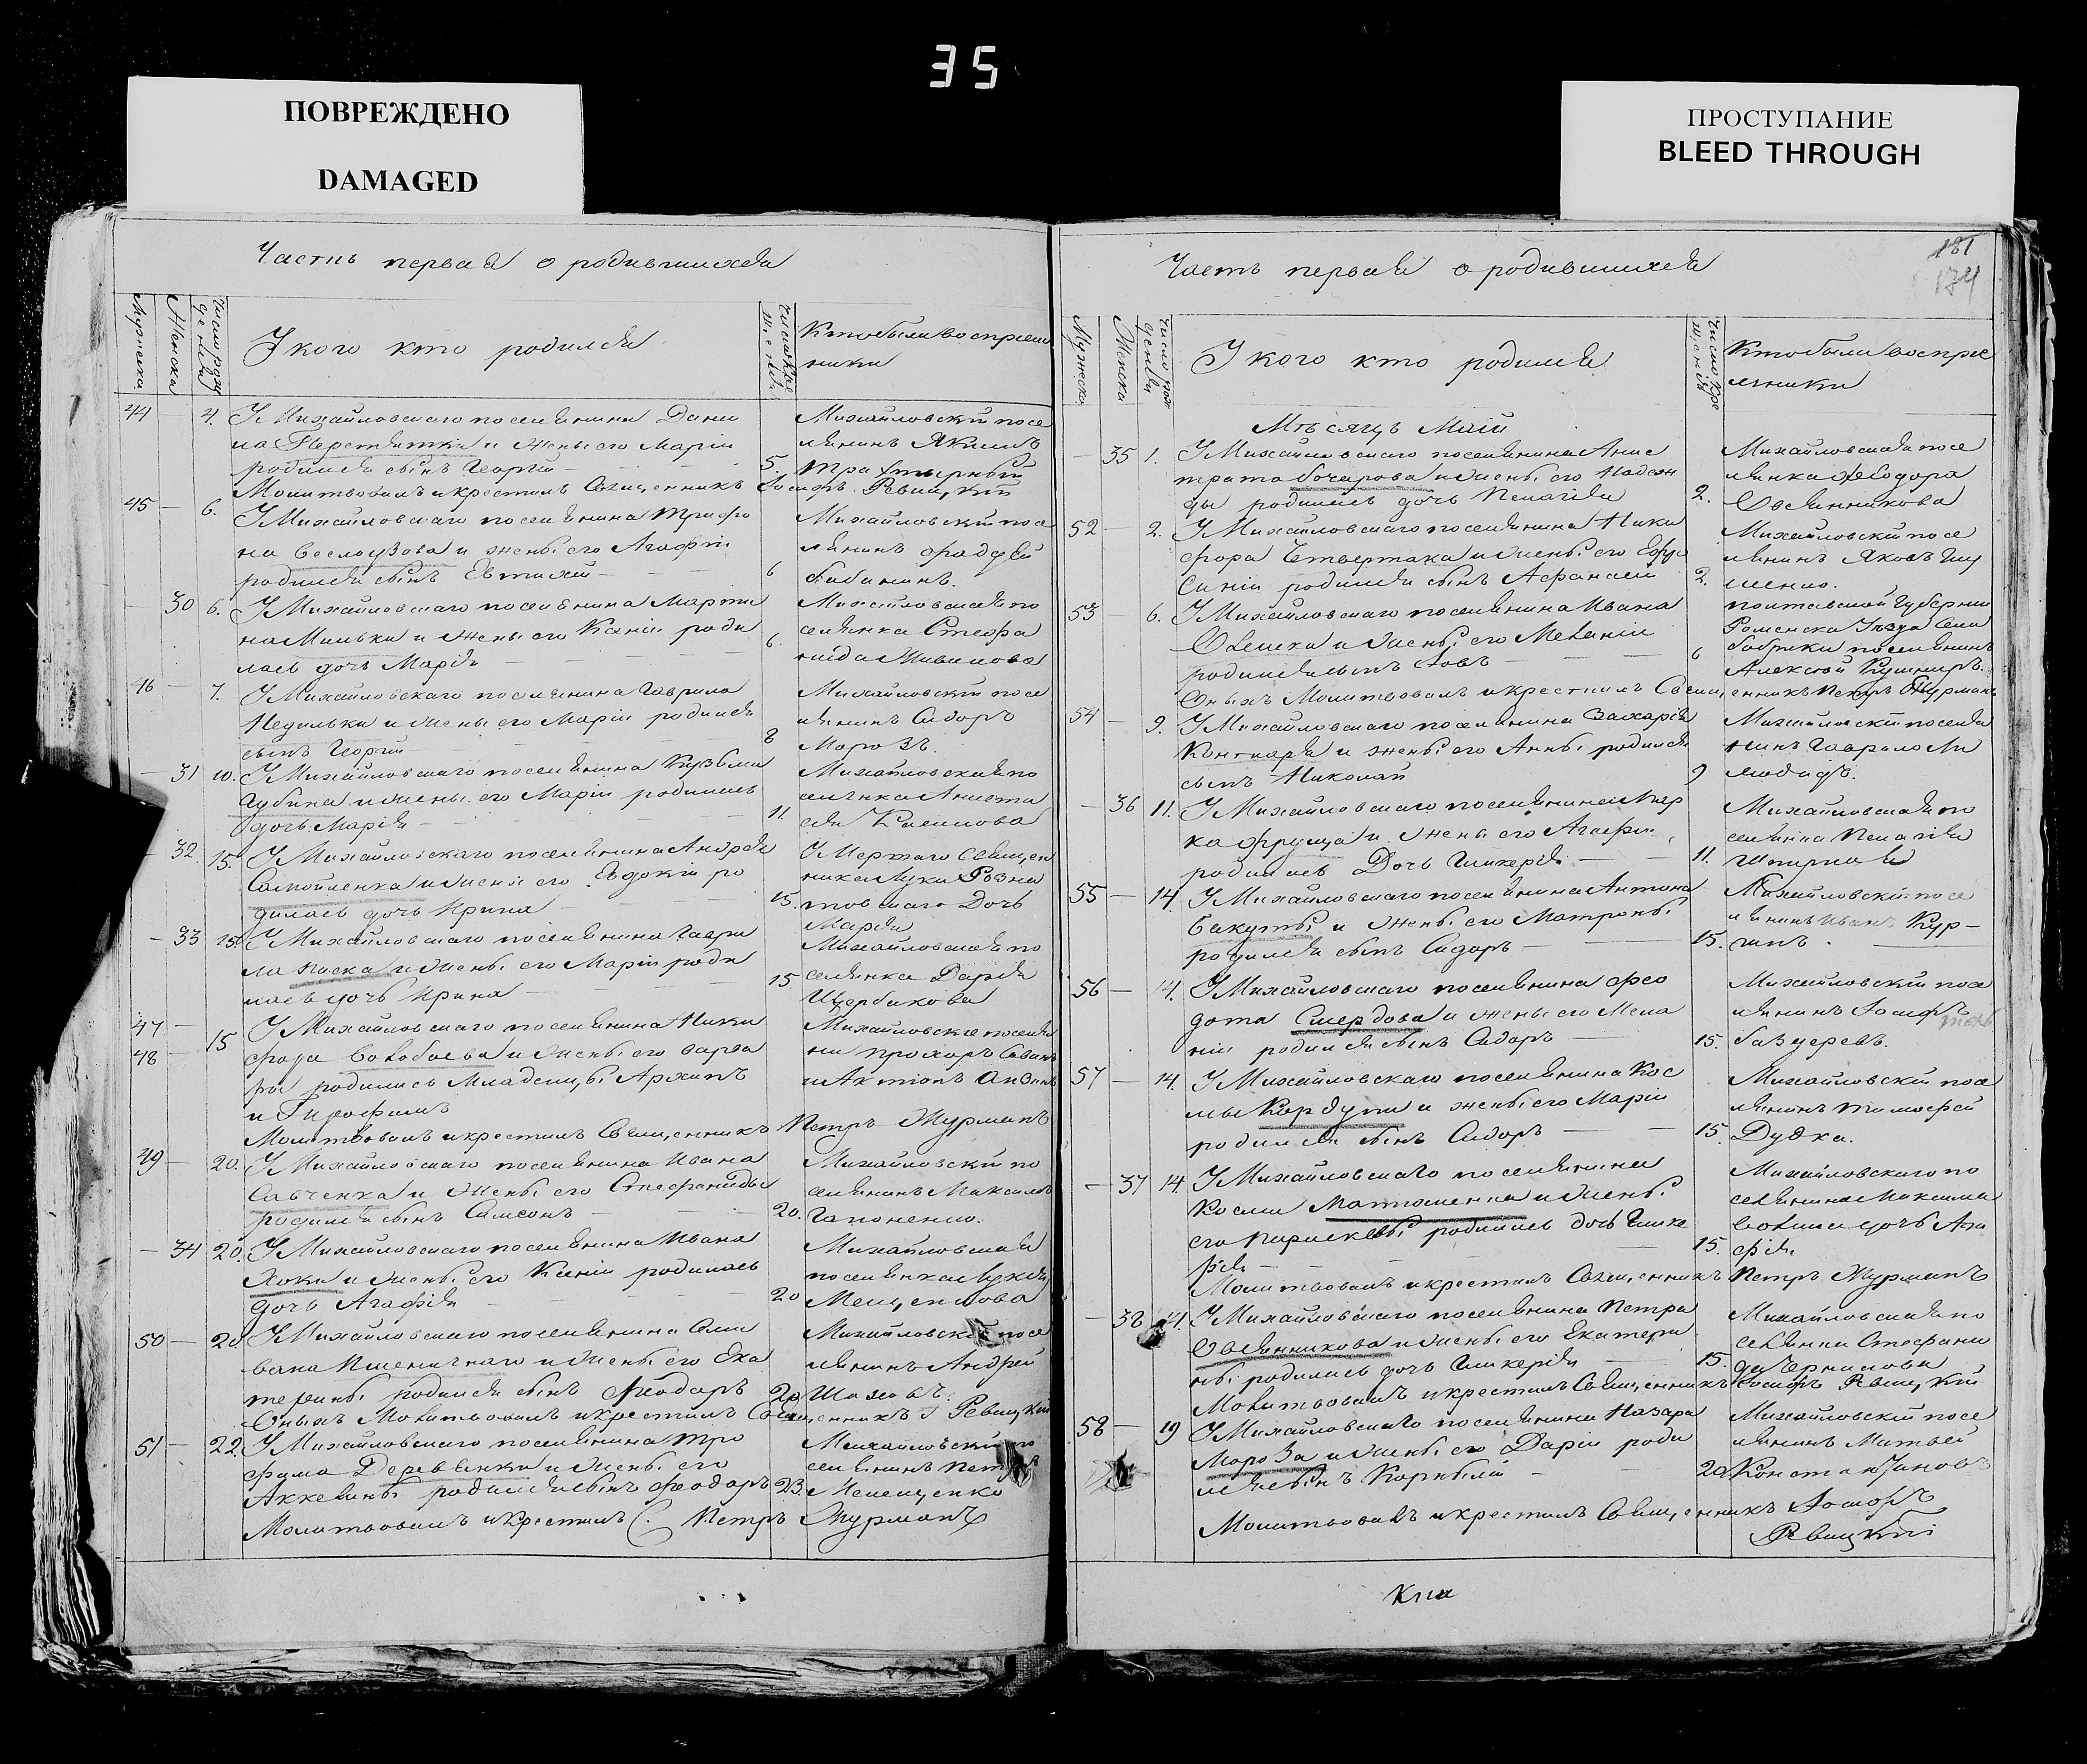 35
ПОВРЕЖДЕНО
DAMAGED
ПРОСТУПАНИЕ
BLEED THROUGH
Часть первая о родившихся
Мужеска
Женска
Число рож
денія
У кого кто родился
Число кре
щенія
Кто были воспріем
ники
44 4. У Михайловскаго поселянина Дани
ла и жены его Маріи
родился сынъ Георгій 5.
Михайловскій посе
лянинъ Якимъ
Молитвовалъ и крестилъ Священникъ Іосифъ Ревицкій
45 6. У Михайловскаго поселянина Трифо
на Веслоузова и жены его Агафіи
родился сынъ Евтихій 6
Михайловскій посе
лянинъ Фаддей
Бабанинъ.
30 6. У Михайловскаго поселянина Марти
на Милька и жены его Ксеніи роди
лась дочь Марія 6.
Михайловская по
селянка Стефа
нида Живилова
46 7. У Михайловскаго поселянина Гаврила
Недилька и жены его Маріи родился
сынъ Георгій 8
Михайловскій посе
лянинъ Сидоръ
Морозъ.
31 10. У Михайловскаго поселянина Кузьмы
Губина и жены его Маріи родилась
дочь Марія 11.
Михайловская по
селянка Аниста
сія
32. 15. У Михайловскаго поселянина Андрея
Самойленка и жены его Евдокіи ро
дилась дочь Ирина 15.
Умершаго Священ
ника Луки
Дочь
Марія
33 15. У Михайловскаго поселянина Гаври
ла Паска и жены его Маріи роди
лась дочь Ирина 15
Михайловская по
селянка Дарія
Щербакова
47
48 15 У Михайловскаго поселянина Ники
фора и жены его Варва
ры родились Младенцы Архипъ
и Трофимъ
Михайловскіе поселя
не Прохоръ Саванъ
Молитвовалъ и крестилъ Священникъ Петръ Журманъ
49 20. У Михайловскаго поселянина Ивана
Савченка и жены его Стефаниды
родился сынъ Самсонъ 20.
Михайловскій по
селянинъ Максимъ
Гапоненко.
34 20. У Михайловскаго поселянина Ивана
Хоки и жены его Ксеніи родилась
дочь Агафія 20
Михайловская
поселянка Лукія
Мелещенкова
50 20. У Михайловскаго поселянина Сели
вана Пшеничнаго и жены его Ека
терины родился сынъ Феодоръ 20
Михайловскій посе
лянинъ Андрей
Оныхъ Молитвовалъ и крестилъ Священникъ І Ревицкій
51 22. У Михайловскаго поселянина Тро
фима Деревянки и жены его
Аккелины родился сынъ Феодоръ 23.
Михайловскій по
селянинъ Петръ
Мелещенко
Молитвовалъ и крестилъ С. Петръ Журманъ
Часть первая о родившихся
181
174
Мужеска
Женска
Число рож
денія
У кого кто родился
Число кре
щенія
Кто были воспріе
мники
Мѣсяцъ Маій
35 1. У Михайловскаго поселянина Анис
трата Бочарова и жены его Надеж
ды родилась дочь Пелагія 2.
Михайловская посе
лянка Феодора
Овсянникова
52 2. У Михайловскаго поселянина Ники
фора Четвертака и жены его Ефро
синіи родился сынъ Афанасій 2.
Михайловскій посе
лянинъ Яковъ
53 6. У Михайловскаго поселянина Ивана
и жены его Меланіи
родился сынъ Іовъ 6
Полтавской Губерніи
Роменска Уѣзда Села
Бобрики поселянинъ
Алексѣй Кушниръ.
Оныхъ Молитвовалъ и крестилъ Священникъ Петръ Журманъ
54 9. У Михайловскаго поселянина Захарія
Контаря и жены его Анны родился
сынъ Николай 9
Михайловскій поселя
нинъ Гаврило
36 11. У Михайловскаго поселянина Мар
ка Фруща и жены его Агафіи
родилась Дочь Гликерія 11.
Михайловская по
селянка Пелагія
55 14. У Михайловскаго поселянина Антона
Бакуты и жены его Матроны
родился сынъ Сидоръ 15.
Михайловскій посе
лянинъ Иванъ Кур-
56 14. У Михайловскаго поселянина Фео
дота Смердова и жены его Мела
ніи родился сынъ Сидоръ 15.
Михайловскій посе
лянинъ Іосифъ
57 14. У Михайловскаго поселянина Кос
мы Кардупи и жены его Маріи
родился сынъ Сидоръ 15.
Михайловскій посе
лянинъ Тимофей
Дудка.
37 14. У Михайловскаго поселянина
Космы Матюшенка и жены
его Параскевы родилась дочь Глике
рія 15.
Михайловскаго по
селянина Максима
дочь Ага
фія
Молитвовалъ и крестилъ Священникъ Петръ Журманъ
38 14. У Михайловскаго поселянина Петра
Овсянникова и жены его Екатери
ны родилась дочь Гликерія 15.
Михайловская по
селянка Стефани
да Чернилова
Молитвовалъ и крестилъ Священникъ Іосифъ Ревицкій
58 19 У Михайловскаго поселянина Назара
Мороза и жены его Даріи роди
лся сынъ Корнилій 20
Михайловскій посе
лянинъ Матвей
Константиновъ
Молитвовалъ и крестилъ Священникъ Іосифъ
Ревицкій